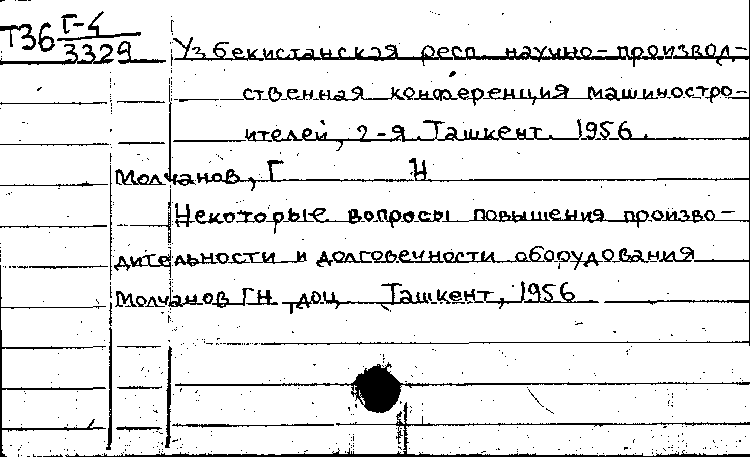 Т36 Г-4
3329
Узбекистанская респ. научно-производ-
ственная конференция машиностро-
ителей, 2-я. Ташкент. 1956.
Молчанов, Г Н
Некоторые вопросы повышения произво-
дительности и долговечности оборудования
Молчанов ГН, доц Ташкент, 1956